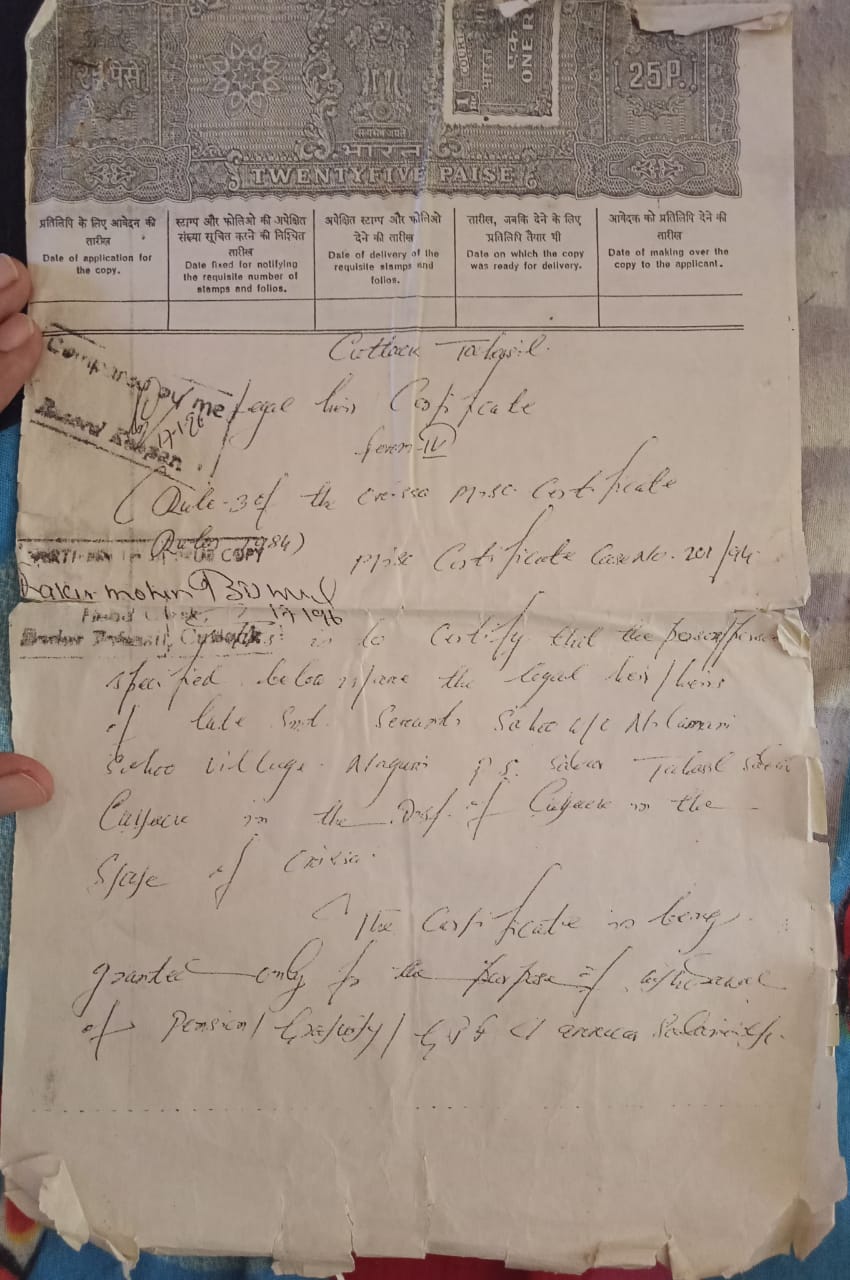 पैसे
COURT
भारत
एक रु
ONE R
25P.
सत्यमेव जयते
भारत
TWENTYFIVE PAISE
प्रतिलिपि के लिए आवेदन की तारीख
Date of application for the copy.
स्टाम्प और फोलिओ की अपेक्षित संख्या सूचित करने की निश्चित तारीख
Date fixed for notifying the requisite number of stamps and folios.
अपेक्षित स्टाम्प और फोलिओ देने की तारीख
Date of delivery of the requisite stamps and folios.
तारीख, जबकि देने के लिए प्रतिलिपि तैयार थी
Date on which the copy was ready for delivery.
आवेदक को प्रतिलिपि देने की तारीख
Date of making over the copy to the applicant.
Cuttack Tahasil.
Compared by me
17-1-96
Record Keeper.
Legal heir Certificate
form-IV
(Rule-3 of the Orissa Misc. Certificate
Rules 1984)
COPY
Misc Certificate Case No. 201/94
17-1-96
is to Certify that the person/
specified below is/are the legal heir/heirs
of late Smt. Sahoo w/o Nilamani
Sahoo Village. P.S. Sadar Tahasil Sadar
Cuttack in the Dist. of Cuttack in the
State of Orissa.
The Certificate is being
granted only for the purpose of withdrawal
of Pension/ Gratuity/ G.P.F